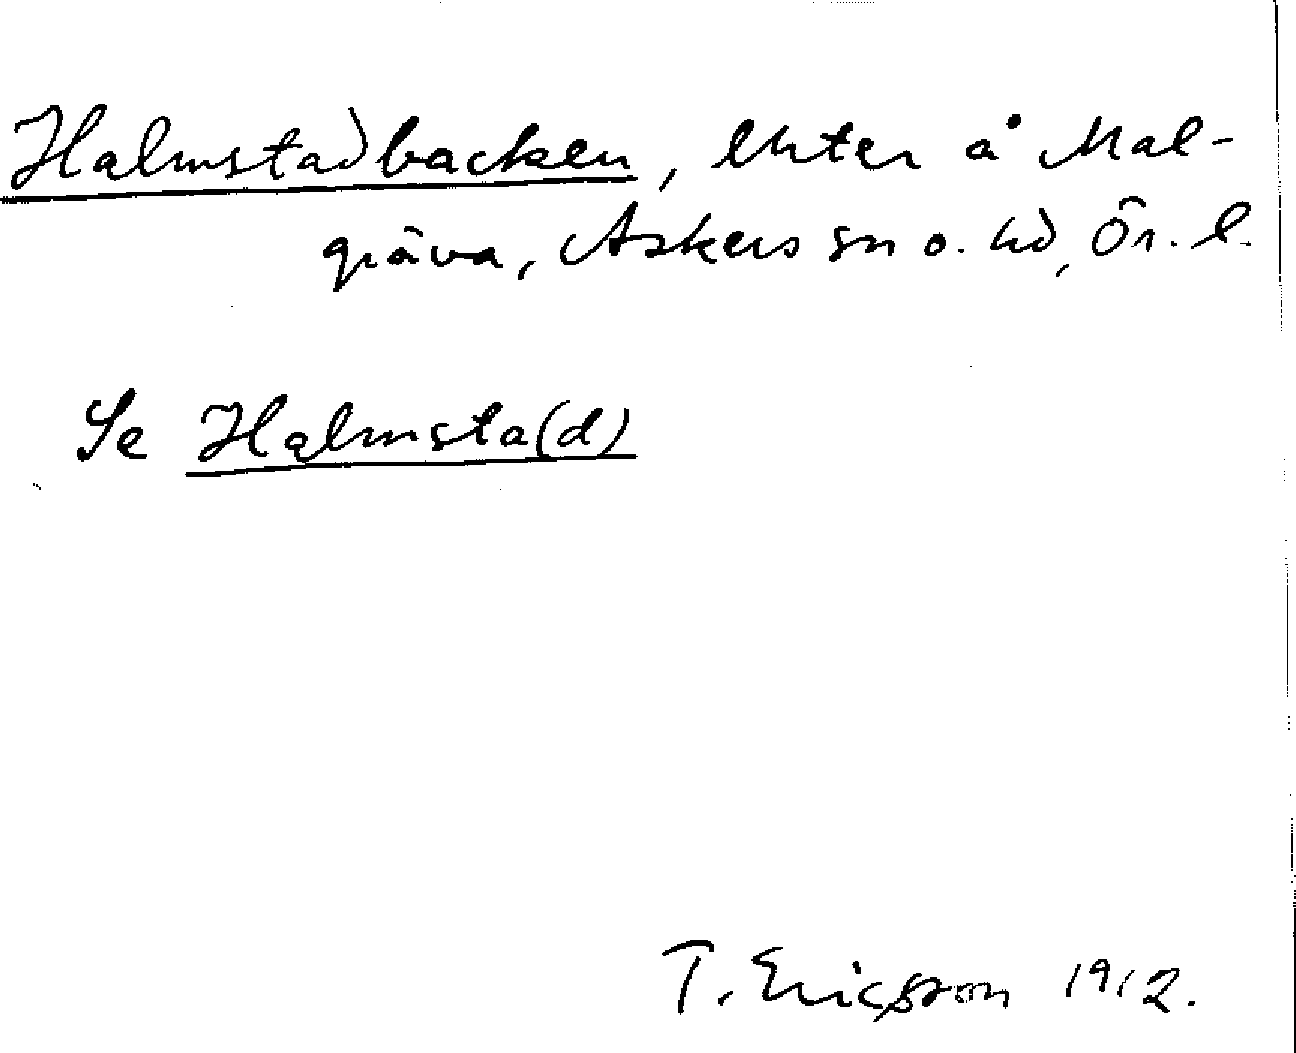 Halmstadbacken, lhter å Mal-
gräva, Askers sn o. hd, Ör. l.
Se Halmsta(d)
T. Ericsson 1912.